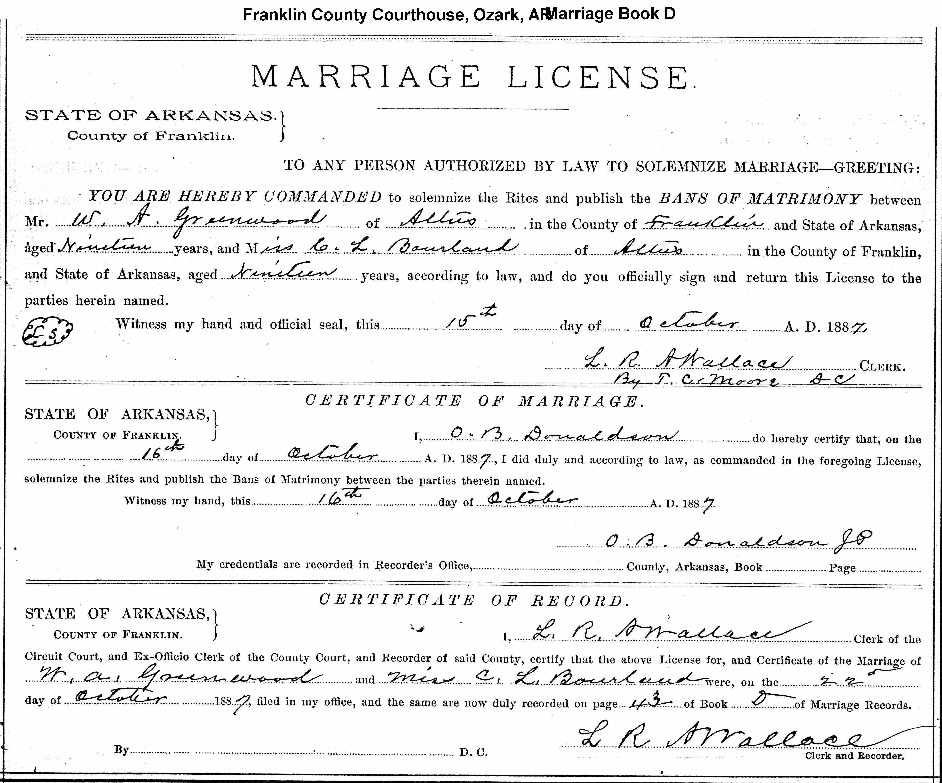 Franklin County Courthouse, Ozark, AR Marriage Book D
MARRIAGE LICENSE.
STATE OF ARKANSAS.
County of Franklin.
TO ANY PERSON AUTHORIZED BY LAW TO SOLEMNIZE MARRIAGE—GREETING:
YOU ARE HEREBY COMMANDED to solemnize the Rites and publish the BANS OF MATRIMONY between
Mr. W. A. Greenwood of Altus in the County of Franklin and State of Arkansas,
aged Nineteen years, and Miss C. L. Bourland of Altus in the County of Franklin,
and State of Arkansas, aged Nineteen years, according to law, and do you officially sign and return this License to the
parties herein named.
Witness my hand and official seal, this 15th day of October A. D. 1887
L. R. Wallace CLERK.
By T. C. Moore D C
CERTIFICATE OF MARRIAGE.
STATE OF ARKANSAS,
COUNTY OF FRANKLIN.
I, O. B. Donaldson do hereby certify that, on the
16th day of October A. D. 1887, I did duly and according to law, as commanded in the foregoing License,
solemnize the Rites and publish the Bans of Matrimony between the parties therein named.
Witness my hand, this 16th day of October A. D. 1887
O. B. Donaldson JP
My credentials are recorded in Recorder's Office, County, Arkansas, Book Page
CERTIFICATE OF RECORD.
STATE OF ARKANSAS,
COUNTY OF FRANKLIN.
I, L. R. Wallace Clerk of the
Circuit Court, and Ex-Officio Clerk of the County Court, and Recorder of said County, certify that the above License for, and Certificate of the Marriage of
W. A. Greenwood and Miss C. L. Bourland were, on the 22
day of October 1887, filed in my office, and the same are now duly recorded on page 43 of Book D of Marriage Records.
L R Wallace
By D. C. Clerk and Recorder.